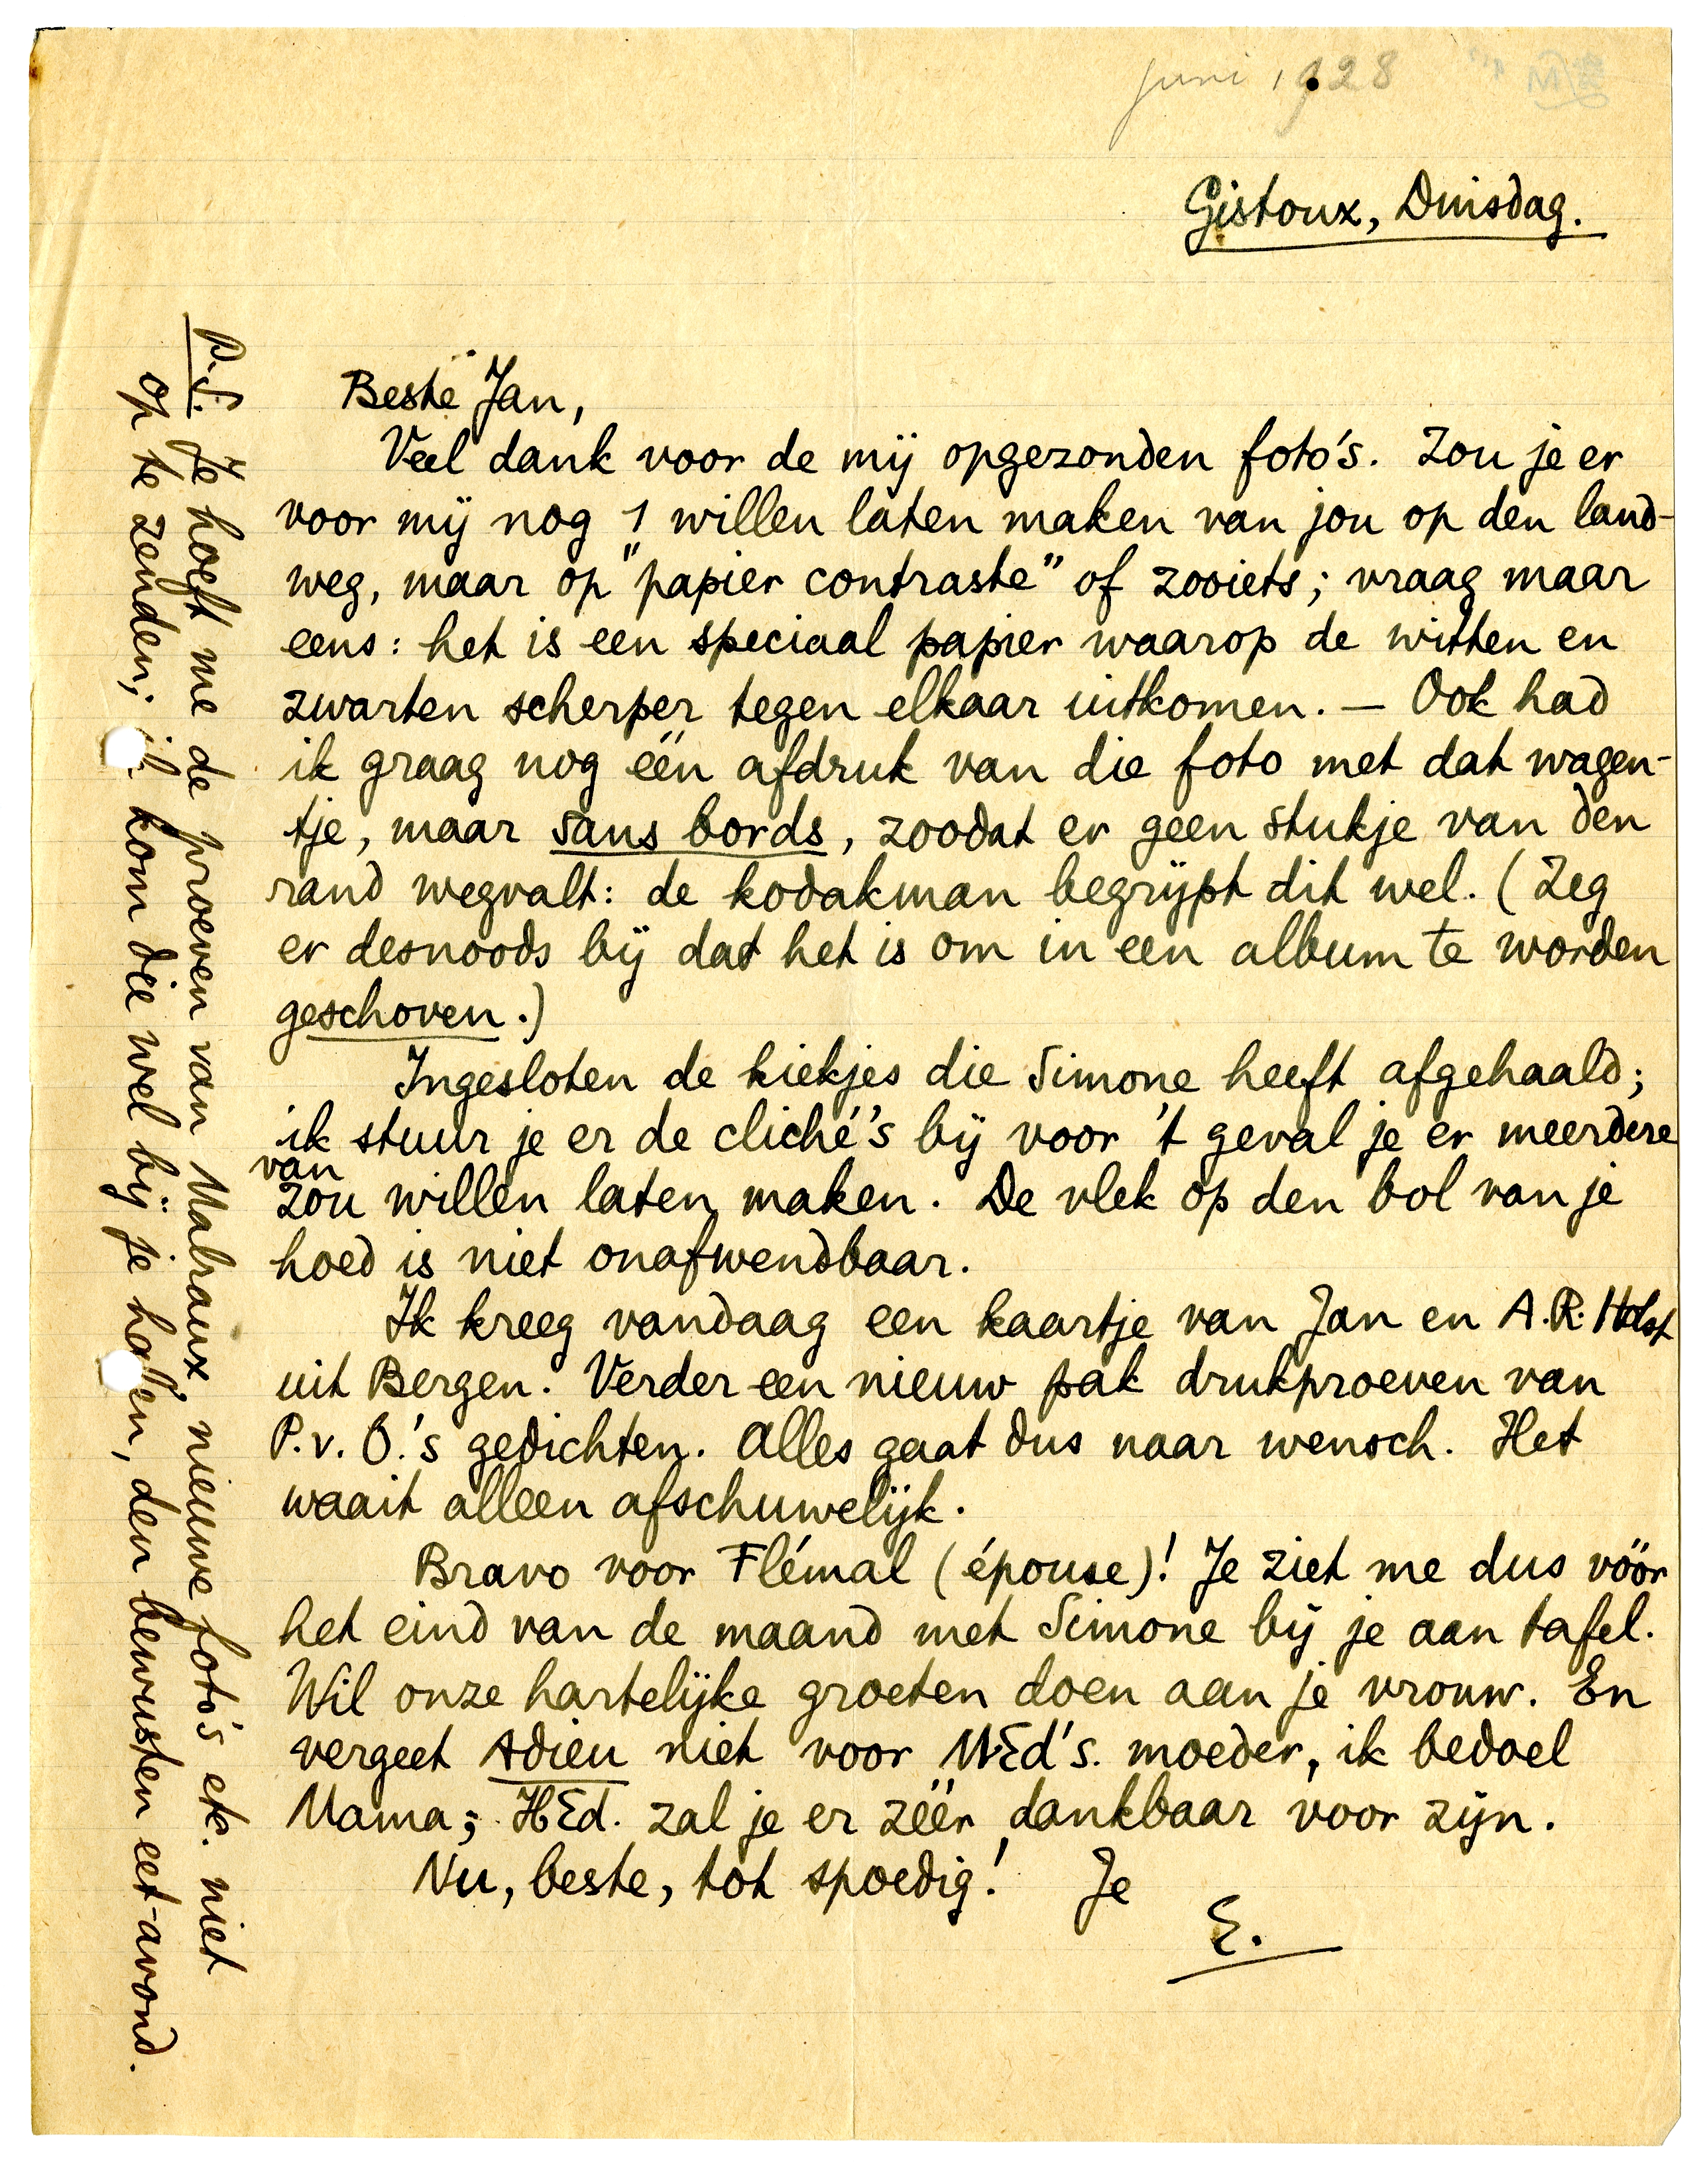 juni 1928
Gistoux, Dinsdag.
Beste Jan,
Veel dank voor de mij opgezonden foto's. Zou je er
voor mij nog 1 willen laten maken van jou op den land-
weg, maar op "papier contraste" of zooiets; vraag maar
eens: het is een speciaal papier waarop de witten en
zwarten scherper tegen elkaar uitkomen. — Ook had
ik graag nog één afdruk van die foto met dat wagen-
tje, maar sans bords, zoodat er geen stukje van den
rand wegvalt: de kodakman begrijpt dit wel. (Zeg
er desnoods bij dat het is om in een album te worden
geschoven.)
Ingesloten de kiekjes die Simone heeft afgehaald;
ik stuur je er de cliché's bij voor 't geval je er meerdere
van
zou willen laten maken. De vlek op den bol van je
hoed is niet onafwendbaar.
Ik kreeg vandaag een kaartje van Jan en A.R. Holst
uit Bergen. Verder een nieuw pak drukproeven van
P.v.O.'s gedichten. Alles gaat dus naar wensch. Het
waait alleen afschuwelijk.
Bravo voor Flémal (épouse)! Je ziet me dus vóór
het eind van de maand met Simone bij je aan tafel.
Wil onze hartelijke groeten doen aan je vrouw. En
vergeet Adieu niet voor WEd's. moeder, ik bedoel
Mama; HEd. zal je er zéér dankbaar voor zijn.
Nu, beste, tot spoedig! Je
E.
P.S. Je hoeft me de proeven van Malraux' nieuwe foto's etc. niet
op te zenden; ik kom die wel bij je halen, den bewusten eet-avond.